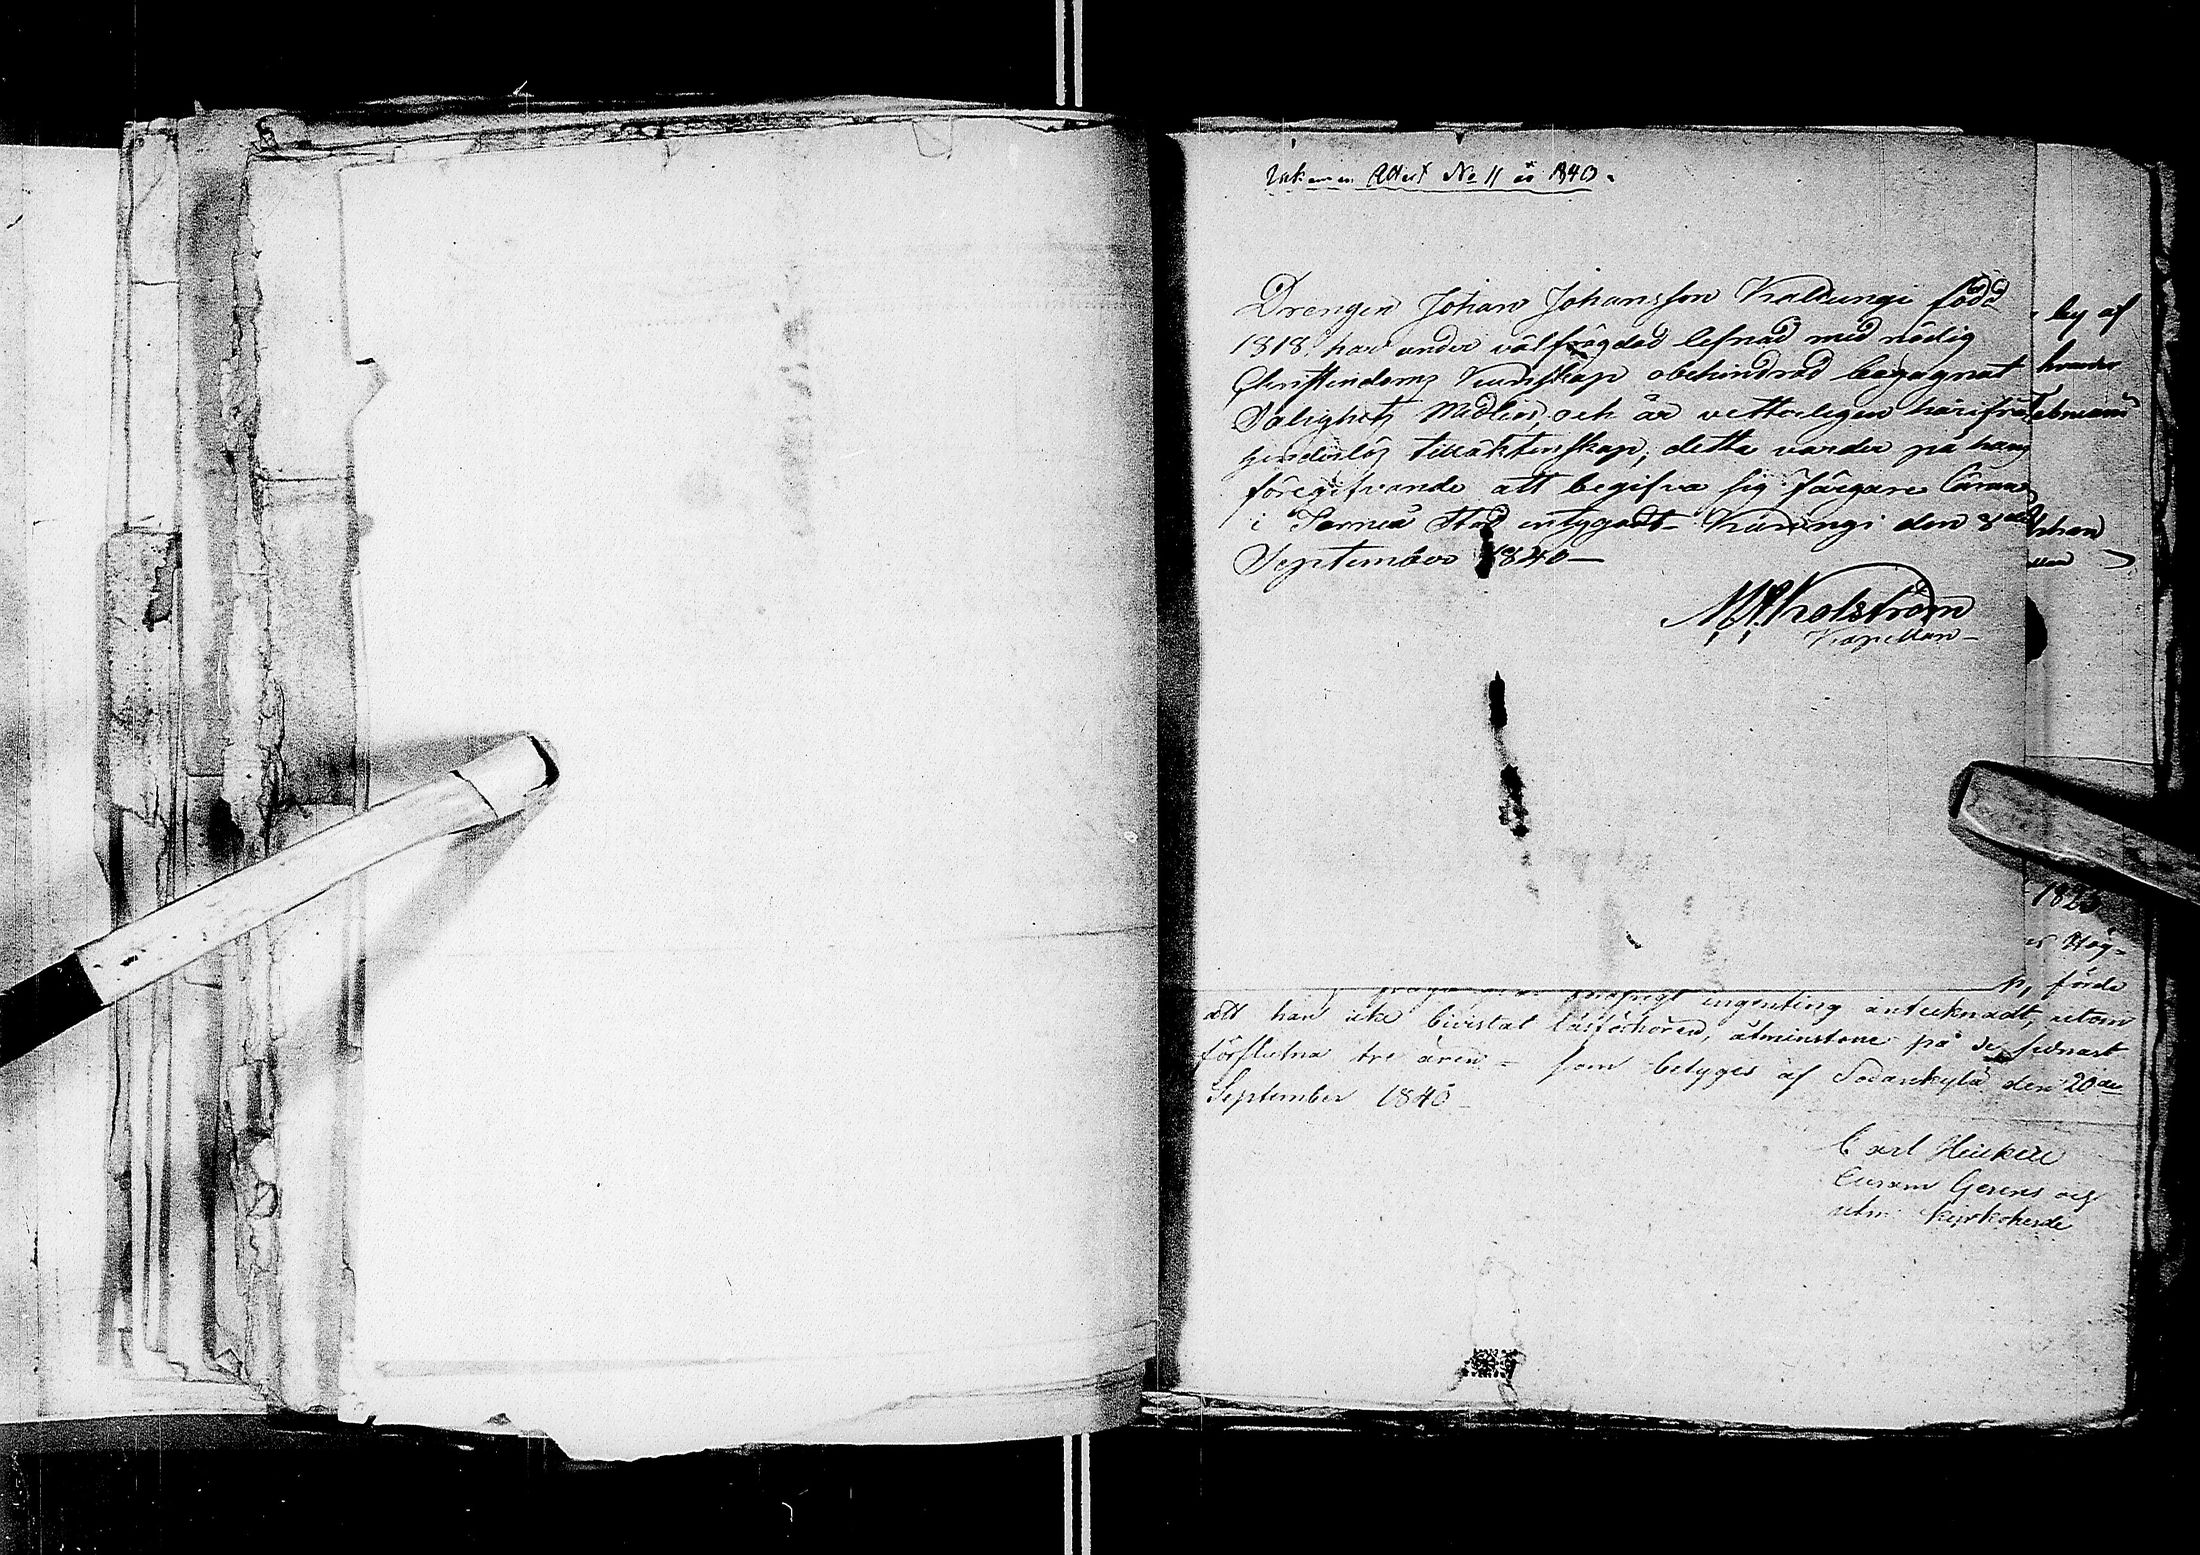 Inkommen Attest No 11 år 1840.
Drengen Johan Johansson Kalkungi född
1818, har under välfrägdad lefnad med nödig
Christendoms Kundskap obehindrad begagnat
Salighets Medlen, och är vetterligen härifrån
hinderlös till äktenskap; detta varder på hans
föregifvande att begifva sig Färgare lärna
i Torneå Stad intygadt. Karungi den 8de
September 1840 —
Kolström
Kapellan —
by af
hvarder
1823
ingenting antecknadt, utom
att han icke bivistat läsförhören, åtminstone på de senast
förflutna tre åren — som betyges af Sodankylä den 20de
September 1840 —
Carl Heikell
Curam Gerens och
utn. Kyrkoherde